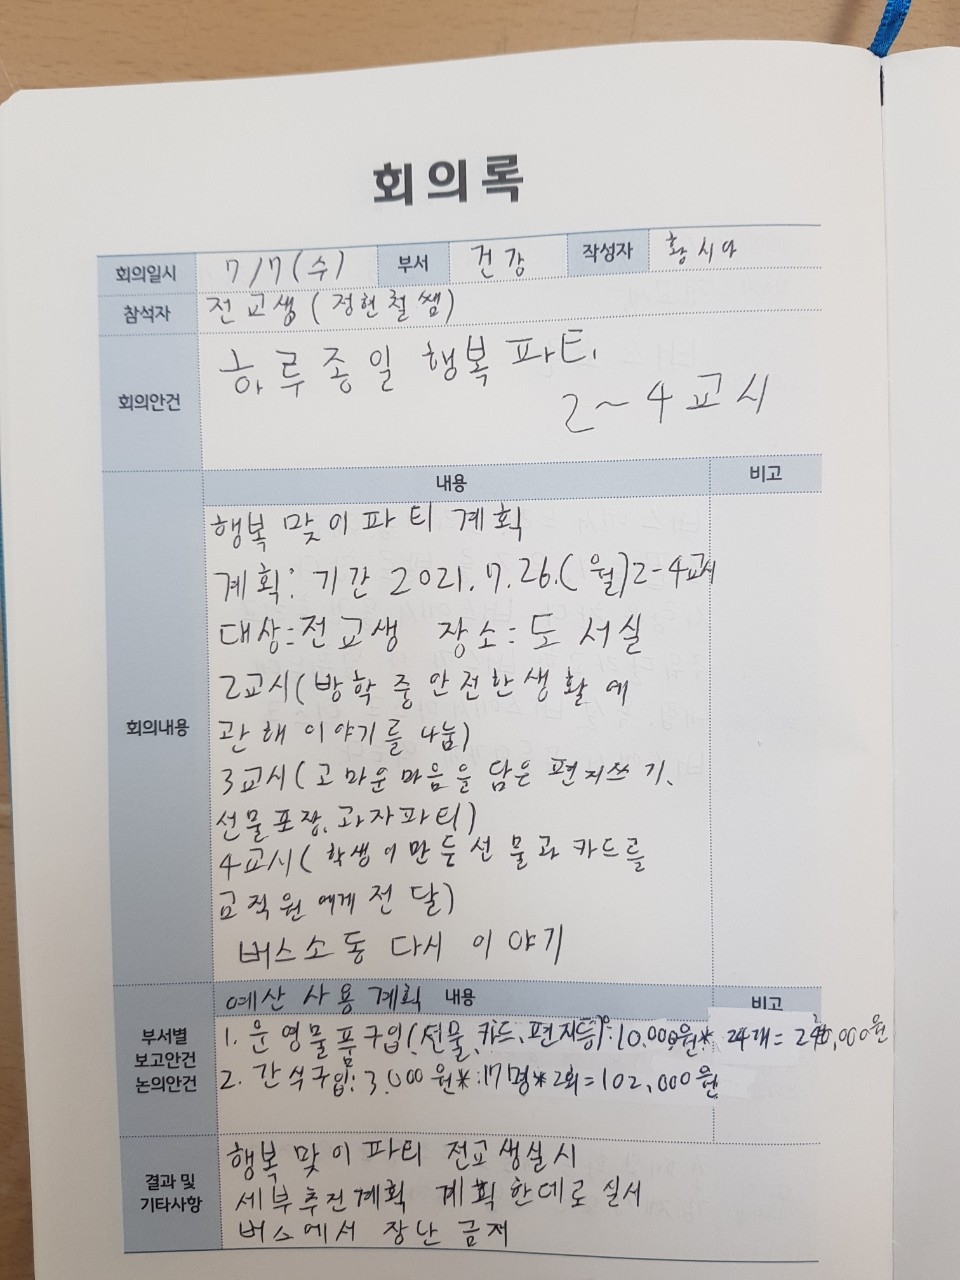 회의록
회의일시 7/7(수) 부서 건강 작성자 황시아
참석자 전교생(정현철쌤)
회의안건 하루종일 행복파티
2~4교시
내용 비고
회의내용
행복 맞이파티 계획
계획: 기간 2021.7.26.(월)2-4교시
대상:전교생 장소:도서실
2교시(방학 중 안전한 생활에
관해 이야기를 나눔)
3교시(고마운마음을 담은 편지쓰기,
선물포장,과자파티)
4교시(학생이 만든 선물과 카드를
교직원에게 전달)
버스소동 다시 이야기
예산 사용 계획 내용 비고
부서별
보고안건
논의안건
1. 운영물품구입(선물,카드,편지등):10,000원* 24개=240,000원
2. 간식구입:3,000원*17명*2회=102,000원
결과 및
기타사항
행복 맞이파티 전교생실시
세부추진계획 계획한데로 실시
버스에서 장난 금지